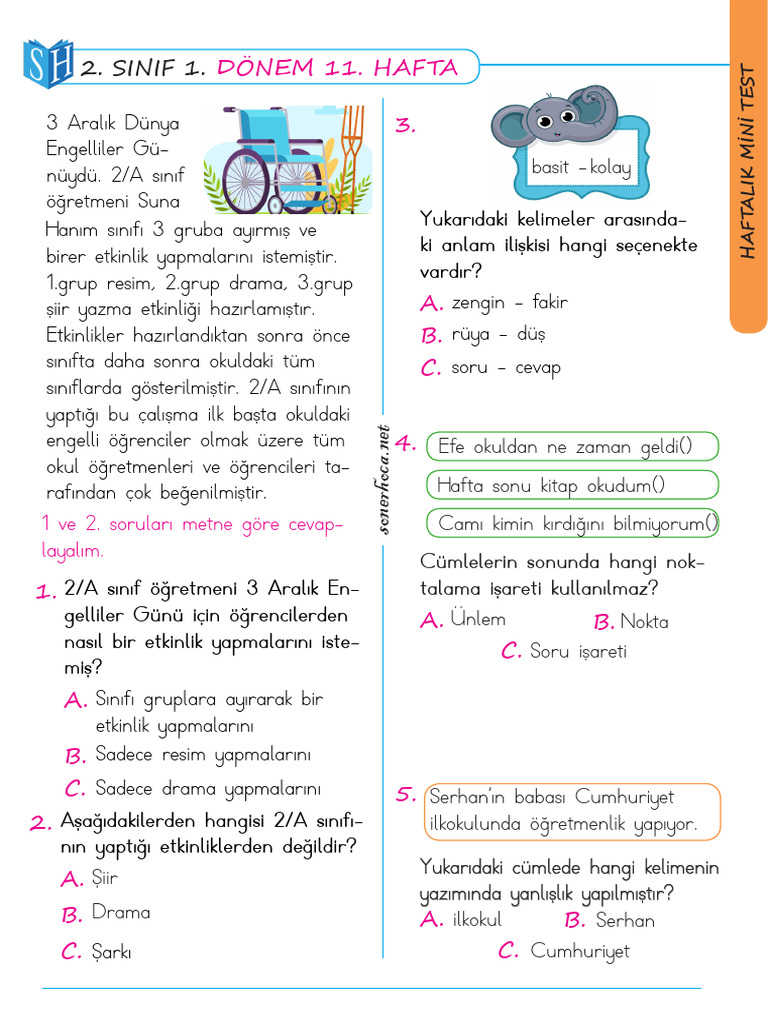 SH
2. SINIF 1. DÖNEM 11. HAFTA
HAFTALIK MİNİ TEST
3 Aralık Dünya
Engelliler Gü-
nüydü. 2/A sınıf
öğretmeni Suna
Hanım sınıfı 3 gruba ayırmış ve
birer etkinlik yapmalarını istemiştir.
1.grup resim, 2.grup drama, 3.grup
şiir yazma etkinliği hazırlamıştır.
Etkinlikler hazırlandıktan sonra önce
sınıfta daha sonra okuldaki tüm
sınıflarda gösterilmiştir. 2/A sınıfının
yaptığı bu çalışma ilk başta okuldaki
engelli öğrenciler olmak üzere tüm
okul öğretmenleri ve öğrencileri ta-
rafından çok beğenilmiştir.
1 ve 2. soruları metne göre cevap-
layalım.
1. 2/A sınıf öğretmeni 3 Aralık En-
gelliler Günü için öğrencilerden
nasıl bir etkinlik yapmalarını iste-
miş?
A. Sınıfı gruplara ayırarak bir
etkinlik yapmalarını
B. Sadece resim yapmalarını
C. Sadece drama yapmalarını
2. Aşağıdakilerden hangisi 2/A sınıfı-
nın yaptığı etkinliklerden değildir?
A. Şiir
B. Drama
C. Şarkı
sonerhoca.net
3.
basit - kolay
Yukarıdaki kelimeler arasında-
ki anlam ilişkisi hangi seçenekte
vardır?
A. zengin - fakir
B. rüya - düş
C. soru - cevap
4. Efe okuldan ne zaman geldi()
Hafta sonu kitap okudum()
Camı kimin kırdığını bilmiyorum()
Cümlelerin sonunda hangi nok-
talama işareti kullanılmaz?
A. Ünlem B. Nokta
C. Soru işareti
5. Serhan'ın babası Cumhuriyet
ilkokulunda öğretmenlik yapıyor.
Yukarıdaki cümlede hangi kelimenin
yazımında yanlışlık yapılmıştır?
A. ilkokul B. Serhan
C. Cumhuriyet